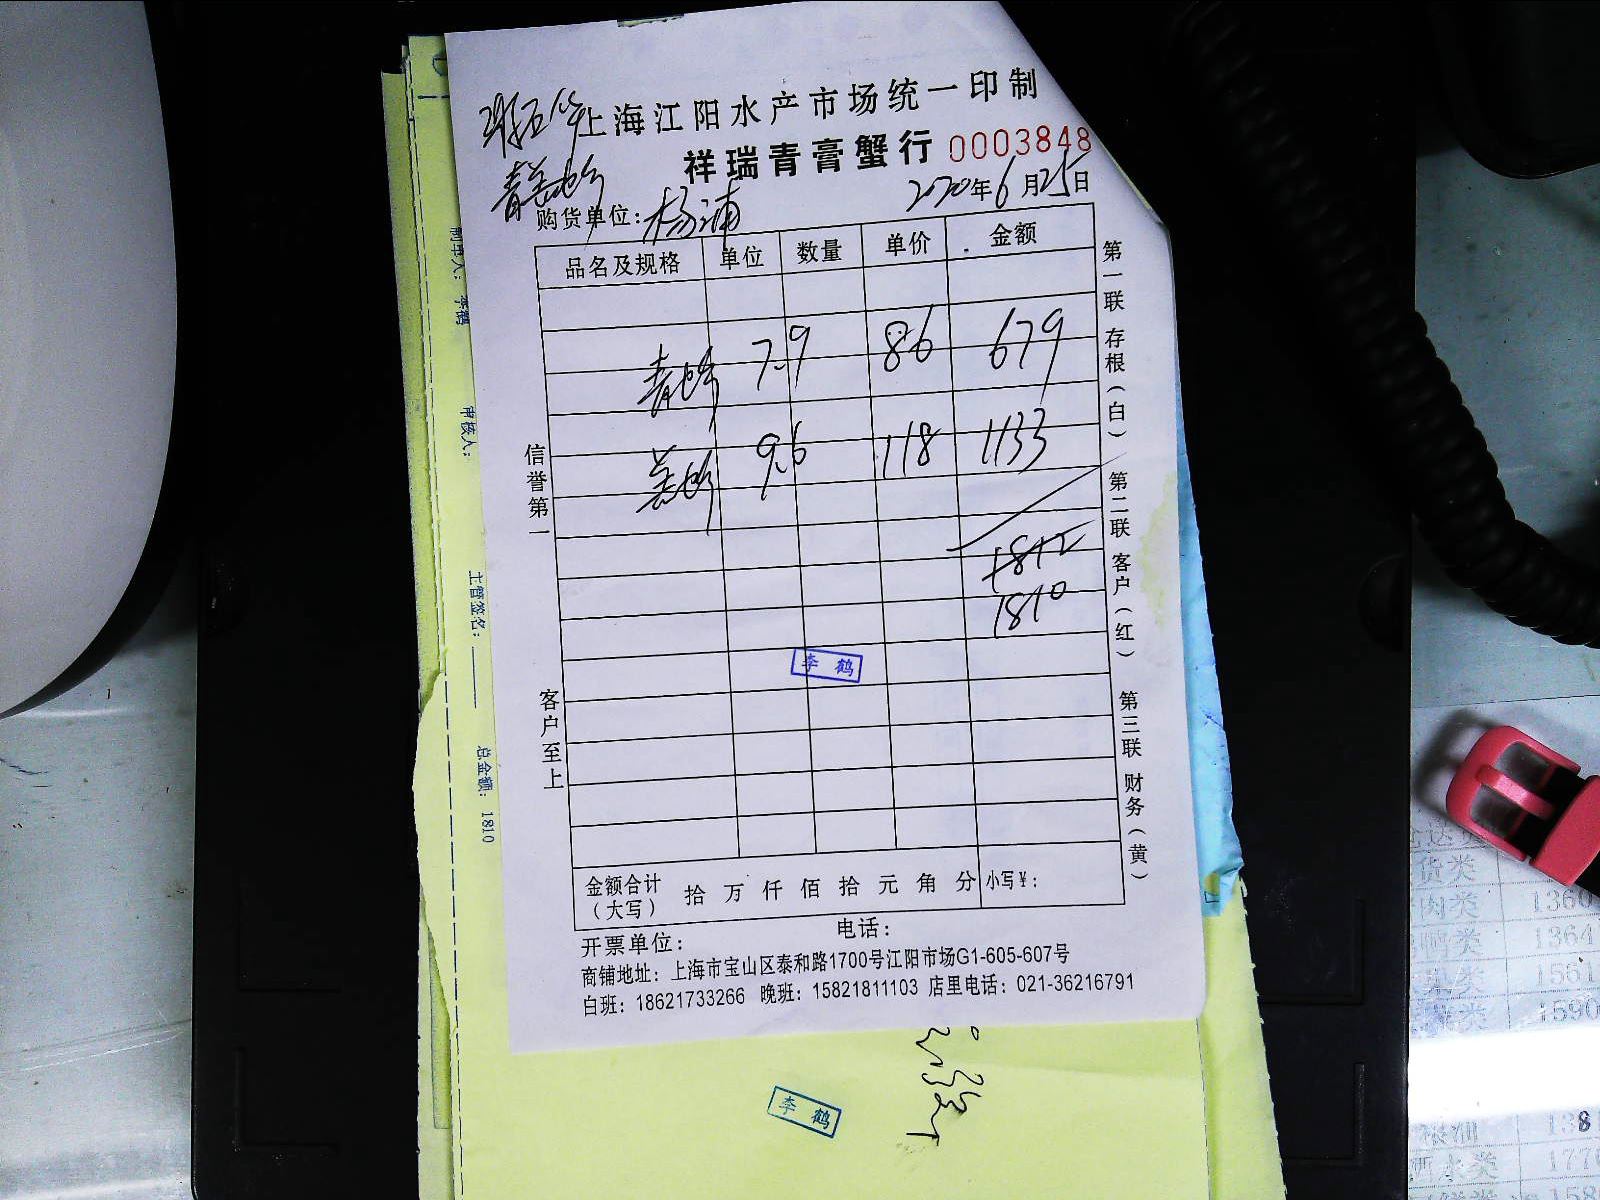 上海江阳水产市场统一印制
祥瑞青膏蟹行 0003848
2020年6月25日
购货单位：杨浦
品名及规格 单位 数量 单价 金额
7.9 86 679
9.6 118 1133
1812
1810
李鹤
金额合计（大写） 拾 万 仟 佰 拾 元 角 分 小写￥：
开票单位： 电话：
商铺地址：上海市宝山区泰和路1700号江阳市场G1-605-607号
白班：18621733266 晚班：15821811103 店里电话：021-36216791
信誉第一
客户至上
第一联 存根（白） 第二联 客户（红） 第三联 财务（黄）
制单人：李鹤
审核人：
主管签名：
总金额：1810
李鹤
货类
肉类 1360
1364
1561
1590
1381
酒水类 1770